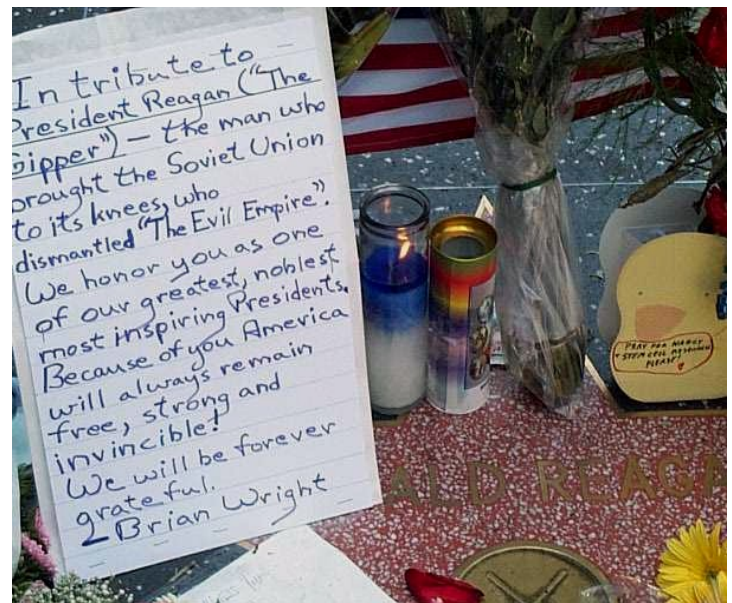 In tribute to
President Reagan ("The
Gipper") — the man who
brought the Soviet Union
to its knees, who
dismantled "The Evil Empire".
We honor you as one
of our greatest, noblest
most inspiring Presidents.
Because of you America
will always remain
free, strong and
invincible!
We will be forever
grateful.
- Brian Wright
PRAY FOR NANCY
+ STEM CELL RESEARCH
PLEASE!
ALD REAGA